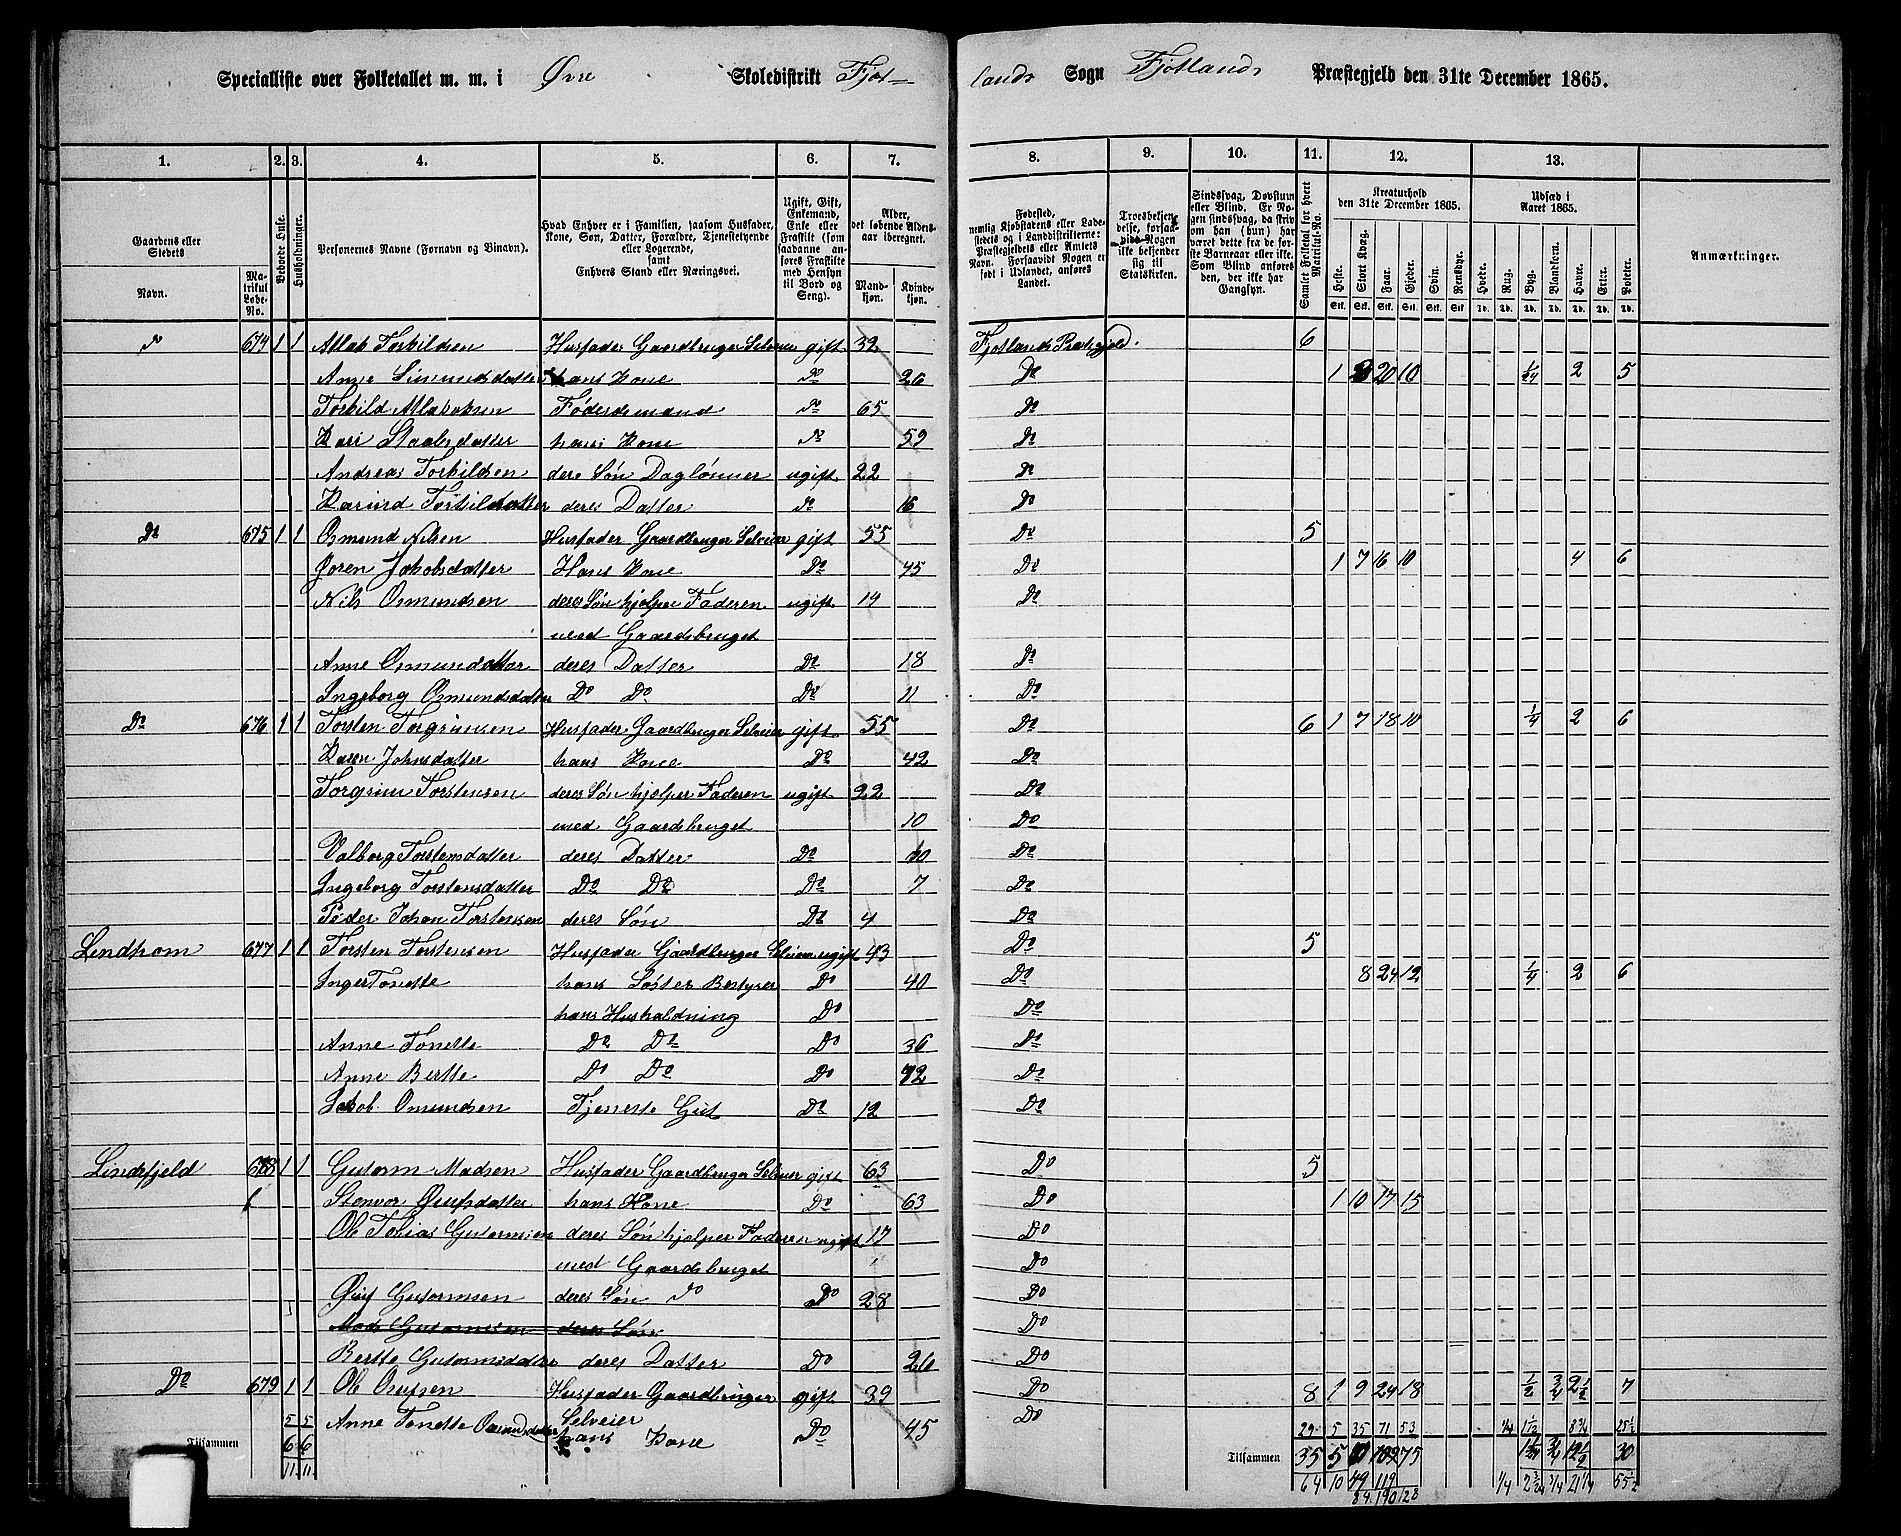 Specialliste over Folketallet m. m. i Øvre Skoledistrikt Fjot-
lands Sogn Fjotlands Præstegjeld den 31te December 1865.
1. 2. 3. 4. 5. 6. 7. 8. 9. 10. 11. 12. 13.
Gaardens eller Stedets
Navn.
Matrikul Løbe-No.
Beboede Huse.
Husholdninger.
Personernes Navne (Fornavn og Binavn).
Hvad Enhver er i Familien, saasom Husfader, Kone, Søn, Datter, Forældre, Tjenestetyende eller Logerende,
samt
Enhvers Stand eller Næringsvei.
Ugift, Gift, Enkemand, Enke eller Fraskilt (som saadanne anføres Fraskilte med Hensyn til Bord og Seng).
Alder, det løbende Aldersaar iberegnet.
Mandkjøn. Kvindekjøn.
Fødested, nemlig Kjøbstadens eller Ladestedets og i Landdistrikterne: Præstegjeldets eller Amtets Navn. Forsaavidt Nogen er født i Udlandet, anføres Landet.
Troesbekjendelse, forsaavidt Nogen ikke bekjender sig til Statskirken.
Sindssvag, Døvstum eller Blind. Er Nogen sindssvag, da skriv om han (hun) har været dette fra de første Barneaar eller ikke. Som Blind anføres den, der ikke har Gangsyn.
Samlet Folketal for hvert Matrikul-No.
Kreaturhold
den 31te December 1865.
Heste. Stort Kvæg. Faar. Gjeder. Svin. Rensdyr.
Udsæd i
Aaret 1865.
Hvede. Rug. Byg. Blandkorn. Havre. Erter. Poteter.
Anmærkninger.
Do 674 1 1 Atlak Torkildsen Husfader Gaardbruger Selveier gift 32 Fjotlands Præstegjeld. 6
Anne Simundsdatter hans Kone Do 26 Do 1 20 10 1/24 2 5
Torkild Atlaksen Føderaadsmand Do 65 Do
Kari Staalsdatter hans Kone Do 59 Do
Andreas Torkildsen deres Søn Daglønner ugift 22 Do
Karind Torkildsdatter deres Datter Do 16 Do
Do 675 1 1 Osmund Nilsen Husfader Gaardbruger Selveier gift 55 Do 5
Joren Jakobsdatter Hans Kone Do 45 Do 1 7 16 10 4 6
Nils Osmundsen deres Søn hjelper Faderen ugift 19 Do
med Gaardsbruget
Anne Osmundsdatter deres Datter Do 18 Do
Ingeborg Osmundsdatter Do Do Do 11 Do
Do 676 1 1 Torsten Torgrimsen Husfader Gaardbruger Selveier gift 55 Do 6 1 7 18 10 1/4 2 6
Karen Johnsdatter hans Kone Do 42 Do
Torgrim Torstensen deres Søn hjelper Faderen ugift 22 Do
med Gaardsbruget 10 Do
Valborg Torstensdatter deres Datter Do 10 Do
Ingeborg Torstensdatter Do Do Do 7 Do
Peder Johan Torstensen deres Søn Do 4 Do
Lindhom 677 1 1 Torsten Torstensen Husfader Gaardbruger Selveier ugift 43 Do 5
Inger Tonette hans Søster Bestyrer Do 40 Do 8 24 12 1/4 2 6
hans Husholdning Do Do
Anne Tonette Do Do Do 36 Do
Anne Bertte Do Do Do 72 Do
Jakob Omundsen Tjeneste Gut Do 12 Do
Lindefjeld 678 1 1 Gutorm Madsen Husfader Gaardbruger Selveier gift 63 Do 5
Stenvor hans Kone Do 63 Do 1 10 17 15
Ole Tobias Gutormsen deres Søn hjelper Faderen ugift 17 Do
med Gaardsbruget Do
Gutormsen deres Søn Do Do 28 Do
Mads Gutormsen deres Søn Do
Bertte Gutormsdatter deres Datter Do 26 Do
Do 679 1 1 Ole Husfader Gaardbruger gift 39 Do 8 1 9 24 18 1/2 3/4 2 1/2 7
Selveier
Anne Tonette Osmundsdatter hans Kone Do 45 Do
5 5 29 5 35 71 53 1/4 1 1/12 8 3/4 25 1/2
Tilsammen 6 6 Tilsammen 35 5 75 3/4 12 1/2 30
11 11 64 10 49 119 1/4 3/4 21 1/4 55 1/2
84 190 128